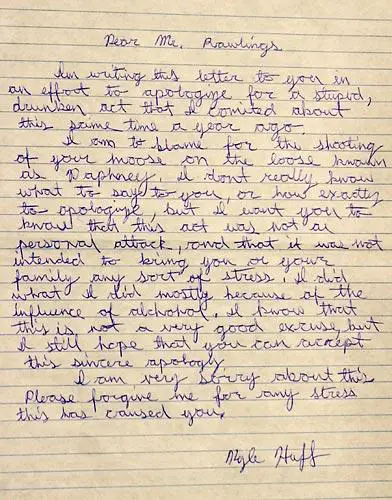 Dear Mr. Rawlings
Im writing this letter to you in
an effort to apologize for a stupid,
drunken act that I comited about
this same time a year ago.
I am to blame for the shooting
of your moose on the loose known
as Daphney. I dont really know
what to say to you, or how exactly
to apologize, but I want you to
know that this act was not a
personal attack, and that it was not
intended to bring you or your
family any sort of stress. I did
what I did mostly because of the
influence of alchohol. I know that
this is not a very good excuse, but
I still hope that you can accept
this sincere apology
I am very sorry about this
Please forgive me for any stress
this has caused you.
Kyle Huff